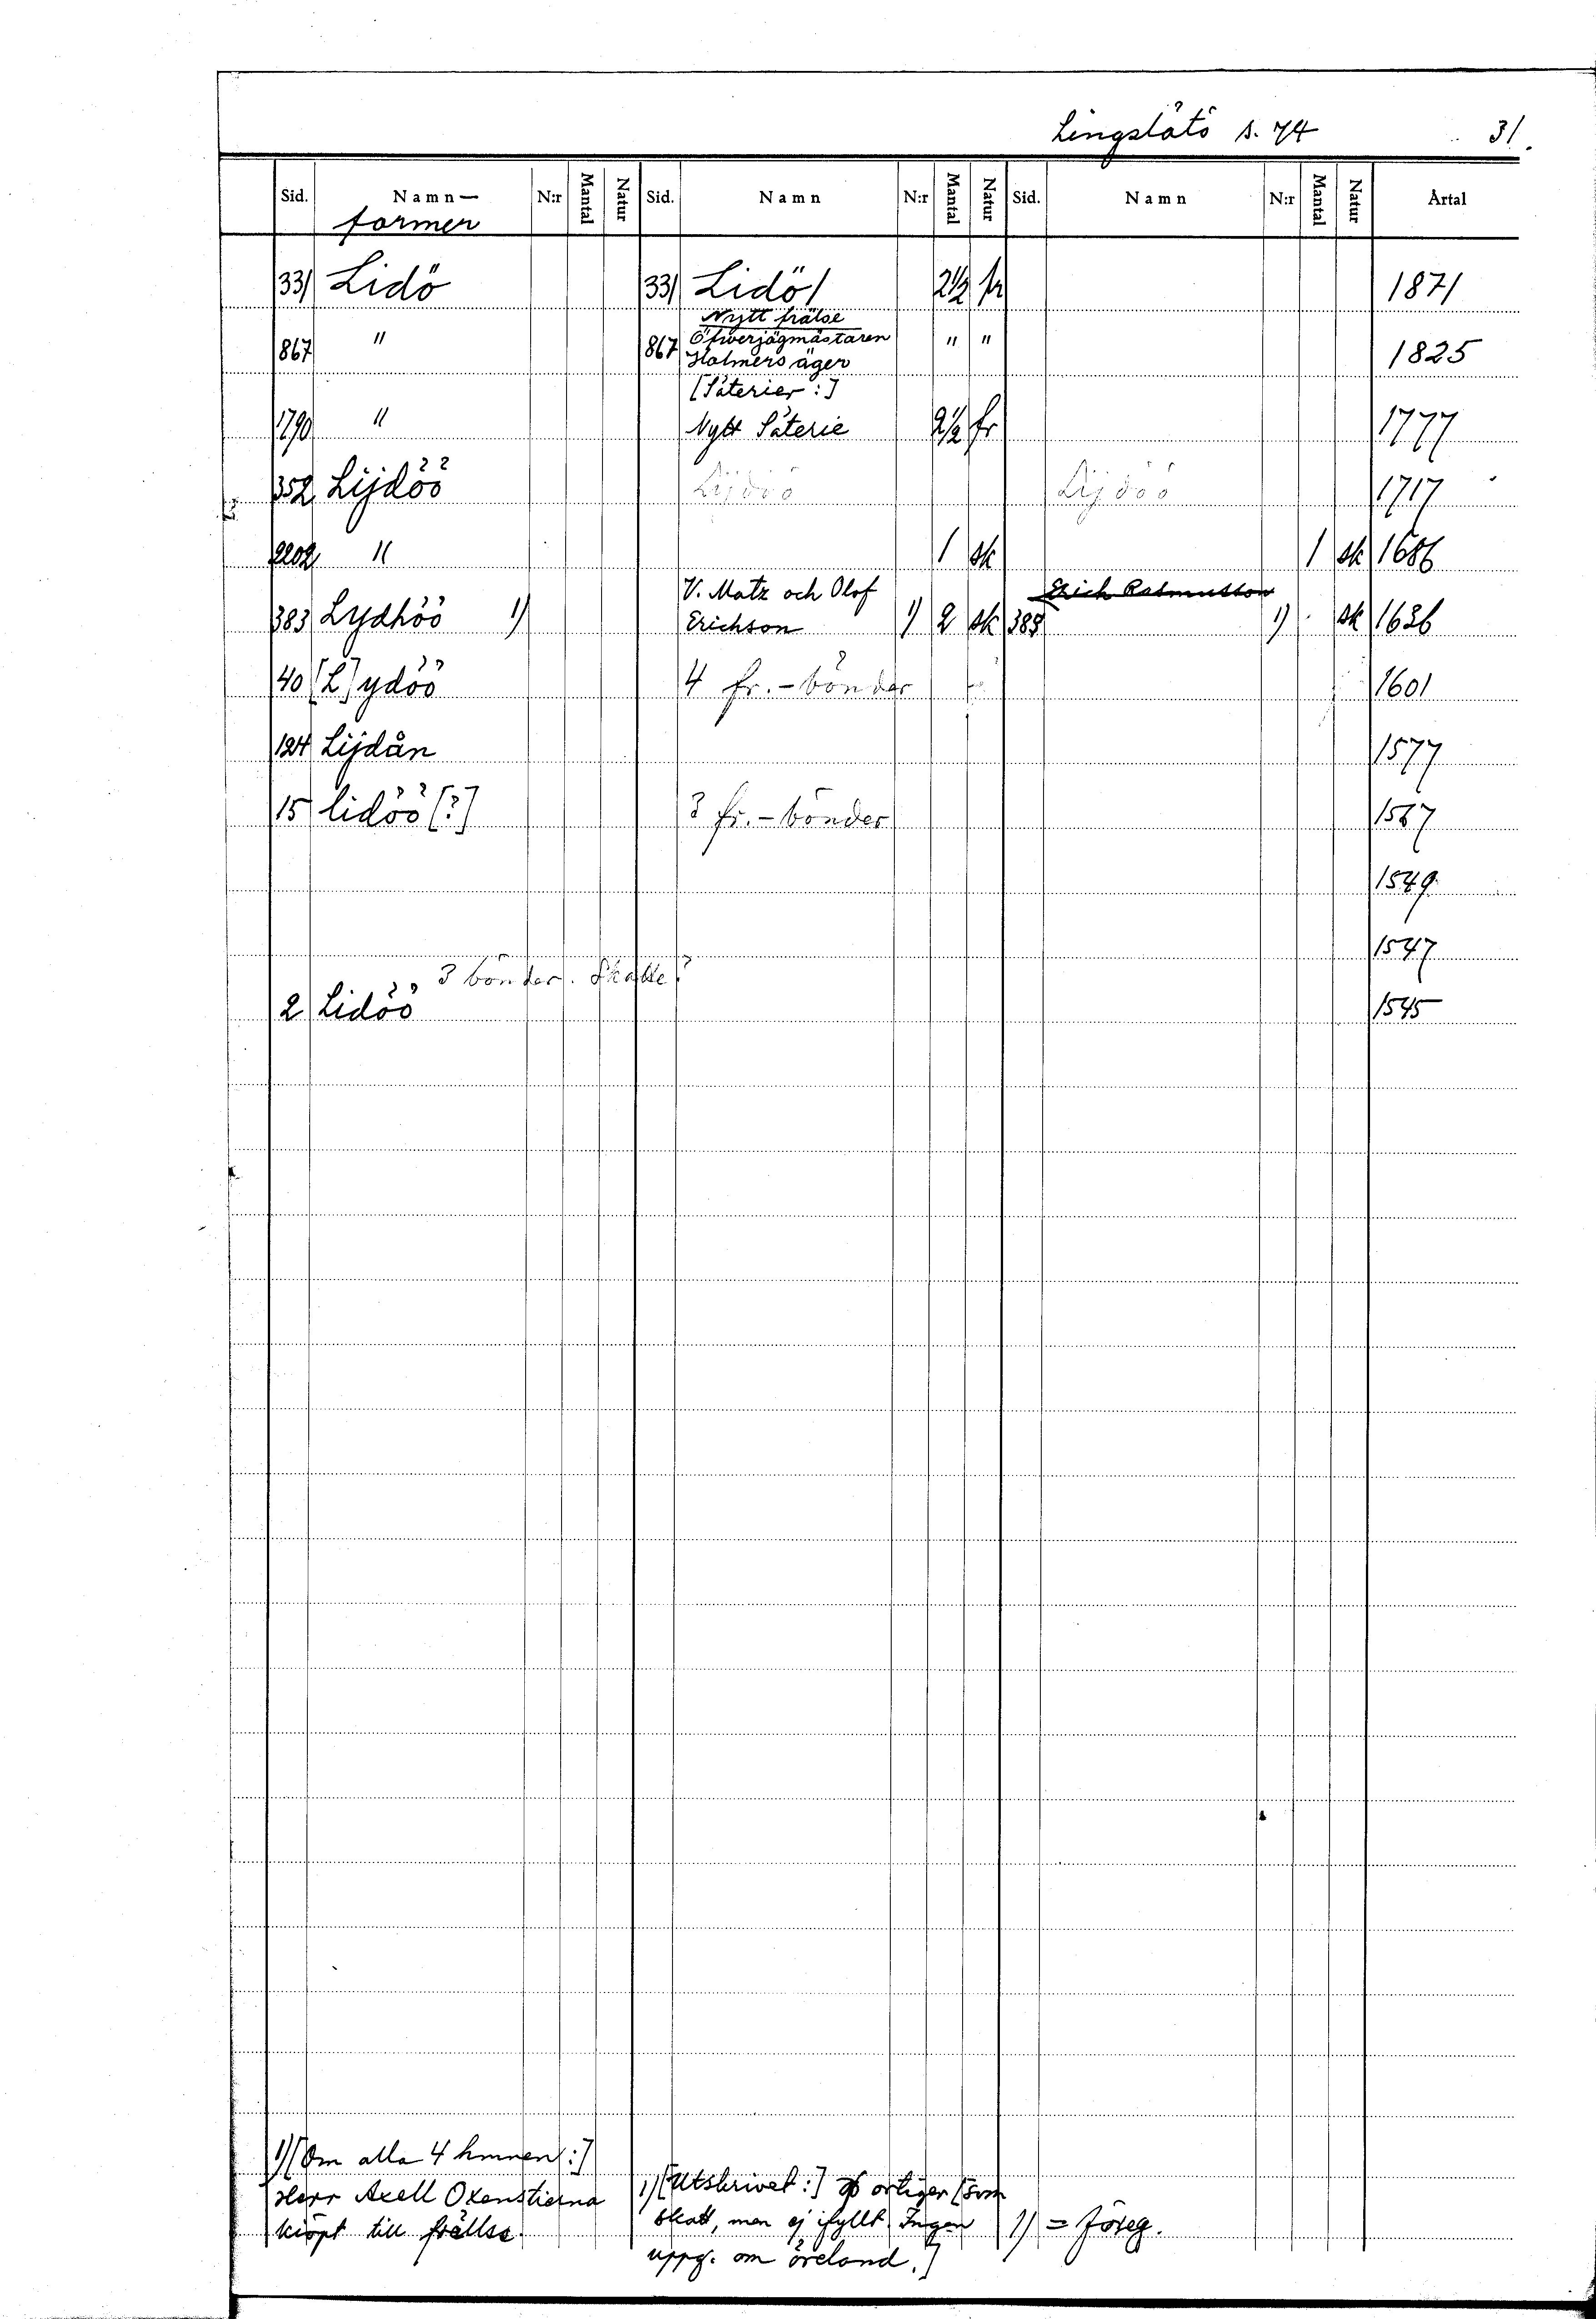 Lingslätö s. 74 31.
Sid. Namn— N:r Mantal Natur Sid. Namn N:r Mantal Natur Sid. Namn N:r Mantal Natur Årtal
former
331 Lidö 331 Lidö 1 2½ fr 1871
Nytt frälse
867 " 867 Öfwerjägmästaren " " 1825
Holmers äger
[Säterier:]
1790 " Nytt Säterie 2½ fr 1777
352 Lijdöö Lijdöö Lijdöö 1717
2202 " 1 sk 1 sk 1686
V. Matz och Olof Erich Rasmusson
383 Lydhöö 1) Erichson 1) 2 sk 383 1) sk 1636
40 [L]ydöö 4 fr.-bönder 1601
124 Lijdån 1577
15 lidöö [?] 3 fr.-bönder 1567
1549
1547
3 bönder. Skatte?
2 Lidöö 1545
1) [Om alla 4 hmnen:]
Herr Axell Oxenstierna
kiöpt till frällse.
1) [Utskrivet:] örtiger [som
skatt, men ej ifyllt. Ingen
uppg. om öreland.]
1) = föreg.